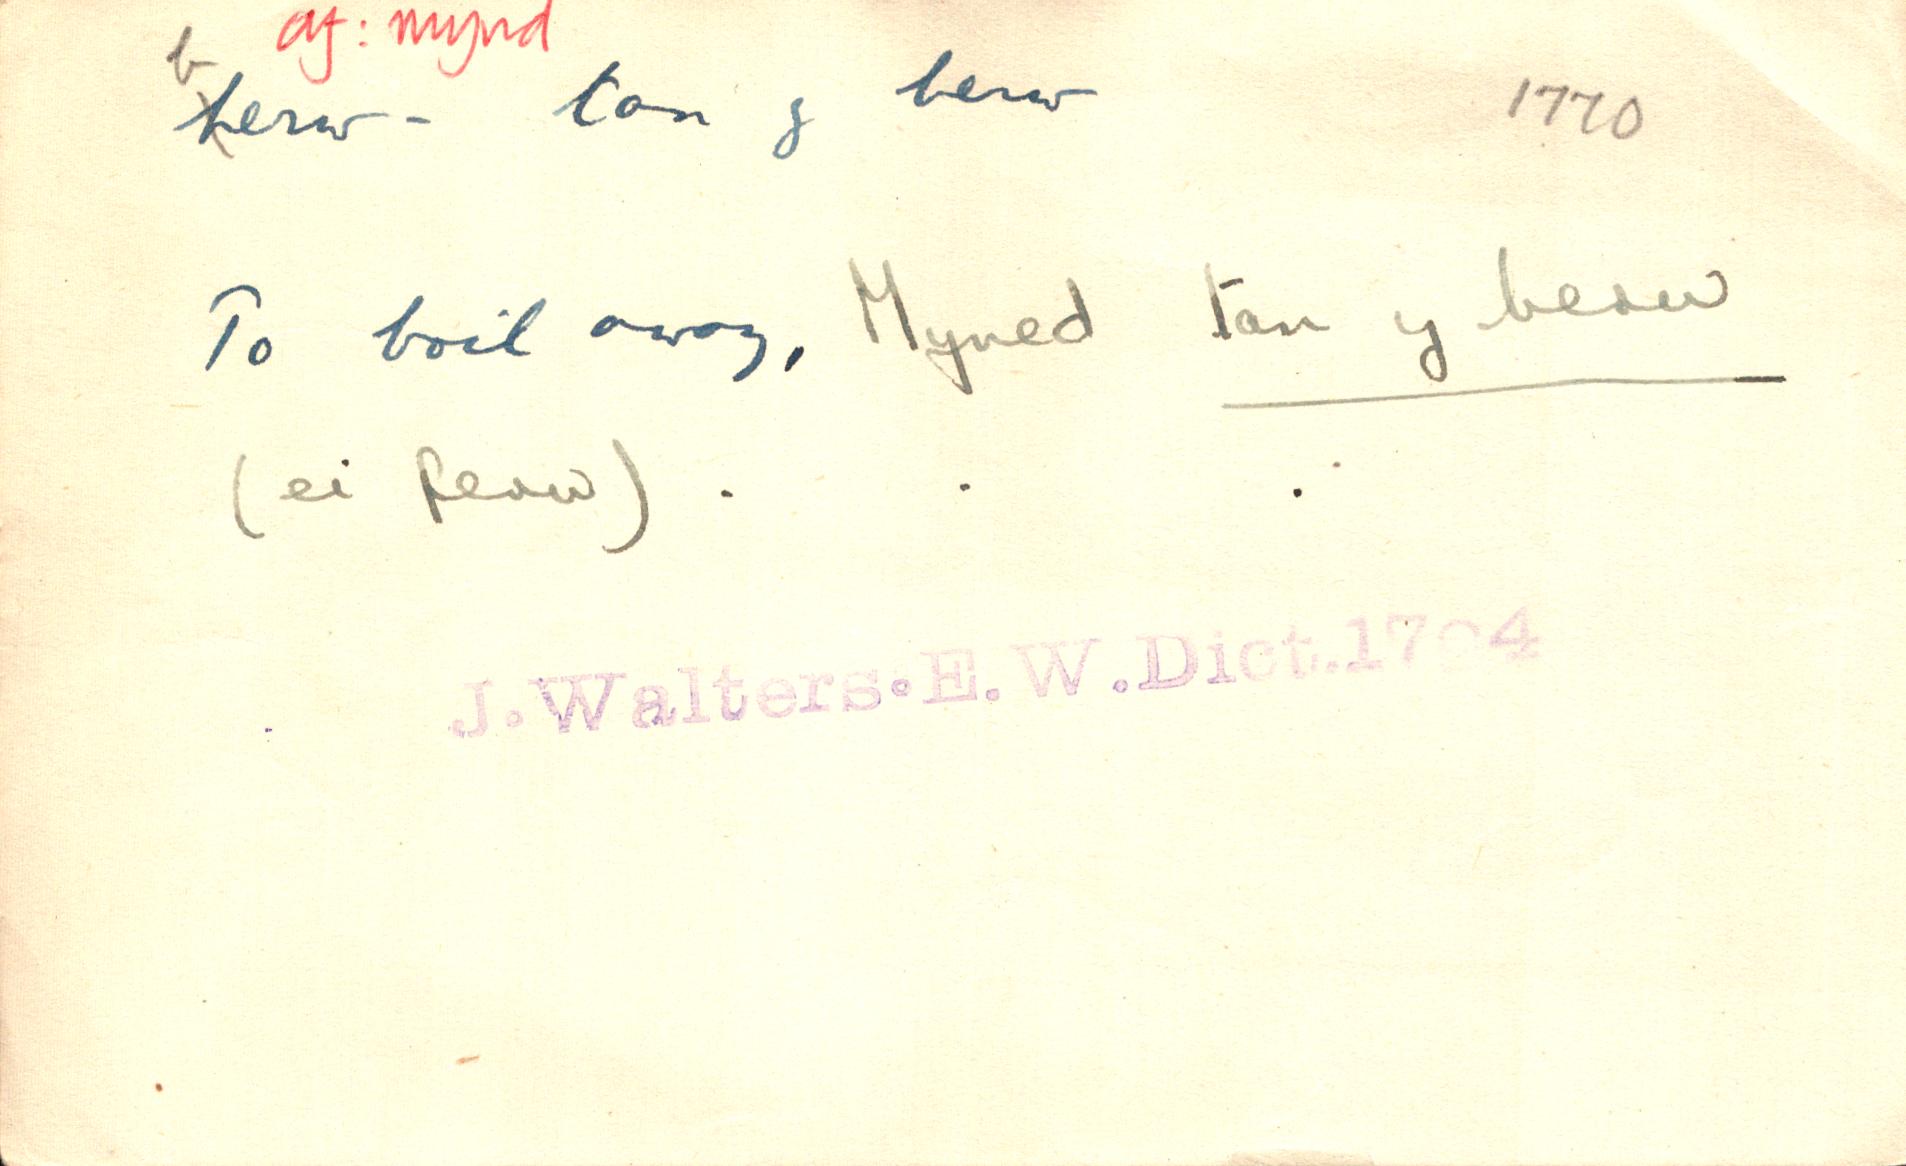 af: mynd
b
herw - tan y berw 1770
To boil away, Myned tan y berw
(ei ferw) . . .
J. Walters. E. W. Dict. 1794